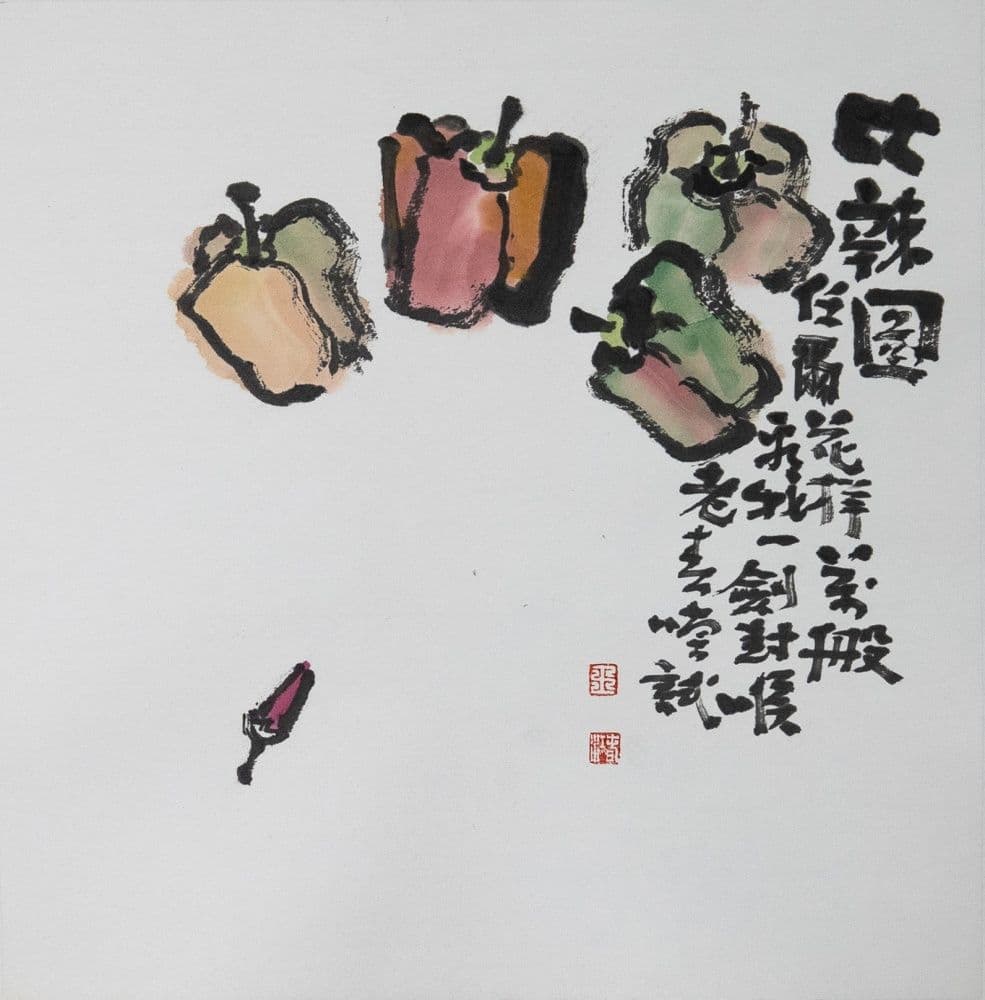 比辣圖
任爾花樣萬般
看我一劍封喉
老嚐試